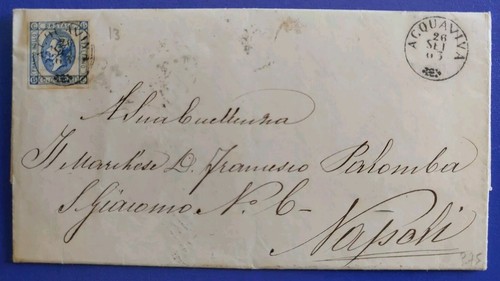 13
ACQUAVIVA
26
SET
63
A Sua Eccellenza
Il Marchese D. Francesco Palomba
S. Giacomo No. 6-
Napoli
275